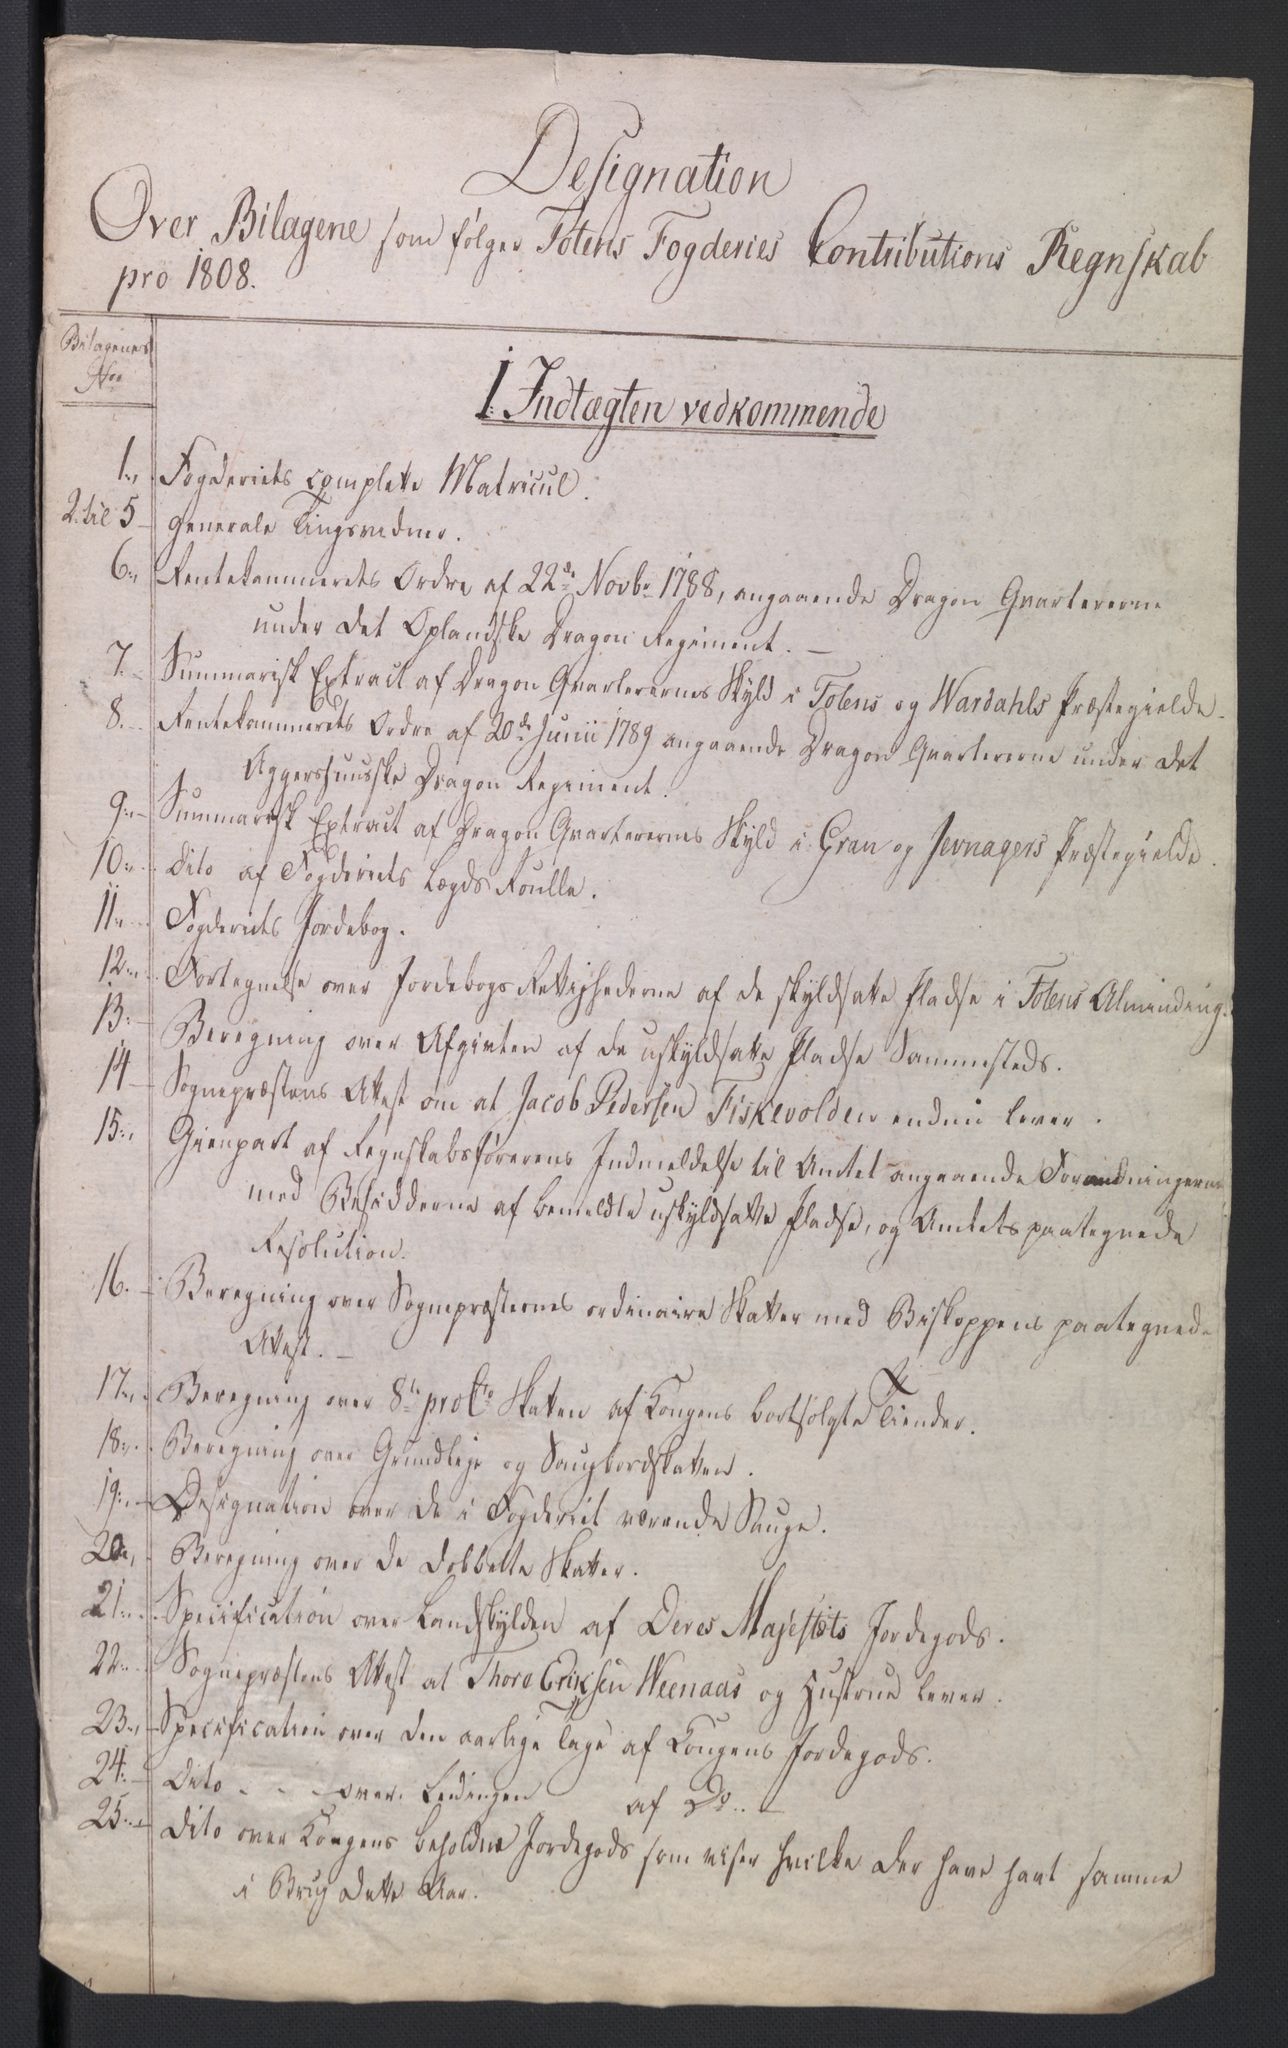 Designation
Over Bilagene som følger Totens Fogderies Contributions Regnskab
pro 1808.
Bilagenes
Nor
I. Indtægten vedkommende
1., Fogderiets complette Matricul.
2 til 5 - Generale Tingsvidner.
6., Rentekammerets Ordre af 22de Novbr 1788, angaaende Dragon Qvartererne
under det Oplandske Dragon Regiment. -
7. - Summarisk Extract af Dragon Qvarterernes Skyld i Totens og Wardahls Præstegielde.
8. - Rentekammerets Ordre af 20de Junii 1789 angaaende Dragon Qvartererne under det
Aggershuusske Dragon Regiment.
9. - Summarisk Extract af Dragon Qvarterernes Skyld i Gran og Jevnagers Præstegielde.
10. - Dito af Fogderiets Lægds Roulle.
11. - Fogderiets Jordebog.
12. - Fortegnelse over Jordebogs Rettighederne af de skyldsatte Pladse i Totens Alminding.
13. - Beregning over Afgivten af de uskyldsatte Pladse Sammesteds.
14 - Sognepræstens Attest om at Jacob Pedersen Fiskevolden endnu lever.
15., Gienpart af Regnskabsførerens Indmeldelse til Amtet angaaende Forandringerne
med Besidderne af bemeldte uskyldsatte Pladse, og Amtets paategnede
Resolution.
16. - Beregning over Sognepræsternes ordinaire Skatter med Biskoppens paategnede
Attest. -
17. - Beregning over 8te pro Cto Skatten af Kongens bortsolgte Tiender.
18. - Beregning over Grundleje og Saugbordskatten.
19. - Designation over de i Fogderiet værende Sauge.
20., Beregning over de dobbelte Skatter.
21. - Specification over Landskylden af Deres Majestæts Jordegods.
22. - Sognepræstens Attest at Thore Eriksen Weenaas og Hustrue lever.
23., - Specification over den aarlige Tage af Kongens Jordegods.
24. - Dito - - - over Leedingen af Do. -
25. - Dito over Kongens beholdne Jordegods som viser hvilke der have havt samme
i Brug dette Aar.